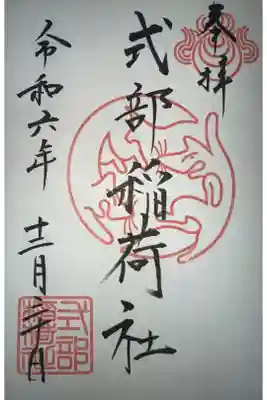 奉拝
式部稲荷社
令和六年
十二月二十日